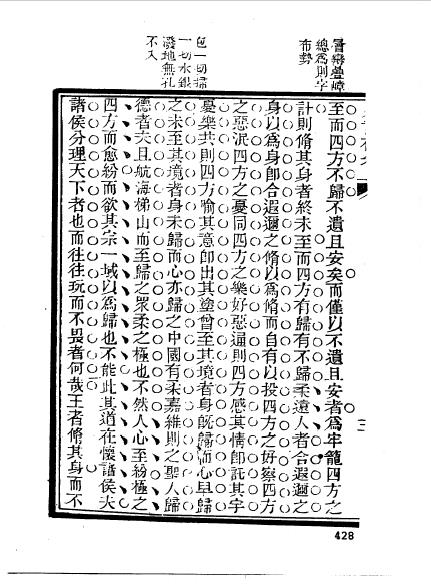 層巒疊嶂
總爲則字
布勢
包一切掃
一切水銀
潑地無孔
不入
至而四方不歸不遺且安矣而僅以不遺且安者爲牢籠四方之
計則脩其身者終未至而四方有歸有不歸柔遠人者合遐邇之
身以爲身卽合遐邇之脩以爲脩而自有以投四方之好察四方
之惡泯四方之憂同四方之樂好惡逼則四方感其情卽託其宇
憂樂共則四方喻其意卽出其塗曾至其境者身旣歸而心早歸
之未至其境者身未歸而心亦歸之中國有柔嘉維則之聖人歸
德者天且航海梯山而至歸之衆柔之極也不然人心至紛極之
四方而愈紛而欲其宗一域以爲歸也不能此其道在懷諸侯夫
諸侯分理天下者也而往往玩而不畏者何哉王者脩其身而不
428